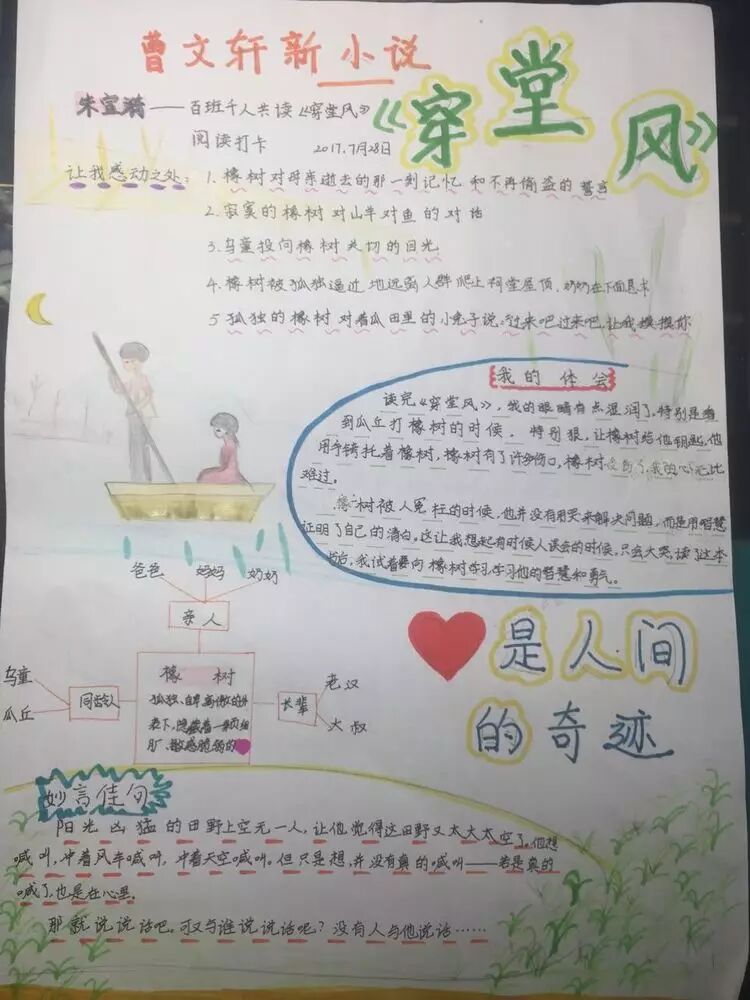 曹文轩新小说
《穿堂风》
朱宣漪——百班千人共读《穿堂风》
阅读打卡 2017.7月28日
让我感动之处:
1. 橡树对母亲逝去的那一刻记忆和不再偷盗的誓言
2. 寂寞的橡树对山羊对鱼的对话
3. 乌童投向橡树关切的目光
4. 橡树被孤独逼近地远离人群爬上祠堂屋顶、奶奶在下面恳求
5 孤独的橡树对着瓜田里的小兔子说:过来吧过来吧,让我摸摸你
我的体会
读完《穿堂风》,我的眼睛有点湿润了,特别是看
到瓜丘打橡树的时候,特别狠,让橡树给他钥匙,他
用手铐托着橡树,橡树有了许多伤口,橡树 了,我的心无比
难过。
橡树被人冤枉的时候,他并没有用哭来解决问题,而是用智慧
证明了自己的清白,这让我想起有时候人误会的时候,只会大哭,读了这本
书后,我试着要向橡树学习,学习他的智慧和勇气。
爸爸 妈妈 奶奶
亲人
乌童
瓜丘
同龄人
橡树
孤独、自卑、高傲的外
表下,隐藏着一颗细
腻、敏感脆弱的
长辈
老汉
大叔
是人间
的奇迹
妙言佳句
阳光凶猛的田野上空无一人,让他觉得这田野又太大太空了。他想
喊叫,冲着风车喊叫,冲着天空喊叫。但只是想,并没有真的喊叫——若是真的
喊了,也是在心里。
那就说说话吧。可又与谁说说话呢?没有人与他说话……